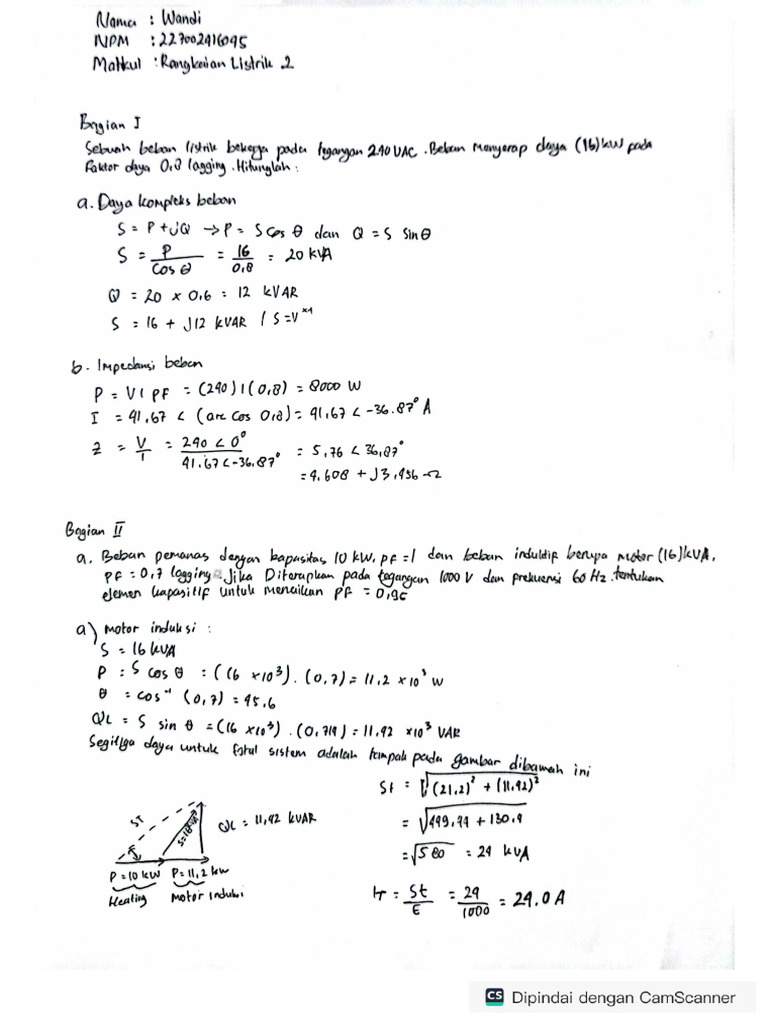 Nama : Wandi
NPM : 227002416095
Matkul : Rangkaian Listrik 2
Bagian I
Sebuah beban listrik bekerja pada tegangan 240 VAC. Beban Menyerap daya (16) kW pada
Faktor daya 0,8 lagging. Hitunglah :
a. Daya kompleks beban
S = P + jQ → P = S cos θ dan Q = S sin θ
S = P / Cos θ = 16 / 0,8 = 20 kVA
Q = 20 x 0,6 = 12 kVAR
S = 16 + J12 kVAR / S = V
b. Impedansi beban
P = V I PF = (240) I (0,8) = 8000 W
I = 41,67 < (arc cos 0,8) = 41,67 < -36.87° A
Z = V / I = 240 < 0° / 41.67 < -36.87° = 5,76 < 36,87°
= 4.608 + J3,456 Ω
Bagian II
a. Beban pemanas dengan kapasitas 10 kW, pf = 1 dan beban induktif berupa motor (16) kVA,
PF = 0,7 lagging. Jika Diterapkan pada tegangan 1000 V dan prekuensi 60 Hz. tentukan
elemen kapasitif untuk menaikan PF = 0,95
a) Motor induksi :
S = 16 kVA
P : S cos θ : (16 x10³) . (0,7) = 11,2 x 10³ W
θ = cos⁻¹ (0,7) = 45.6
QL = S sin θ = (16 x10³) . (0,714) = 11,42 x10³ VAR
Segitiga daya untuk total sistem adalah tampak pada gambar dibawah ini
St = √(21.2)² + (11,42)²
= √449,44 + 130.4
= √580 = 24 kVA
IT = St / E = 24 / 1000 = 24.0 A
ST
S=16 kVA
QL = 11,42 kVAR
P = 10 kW P = 11,2 kW
Heating Motor Induksi
CS Dipindai dengan CamScanner